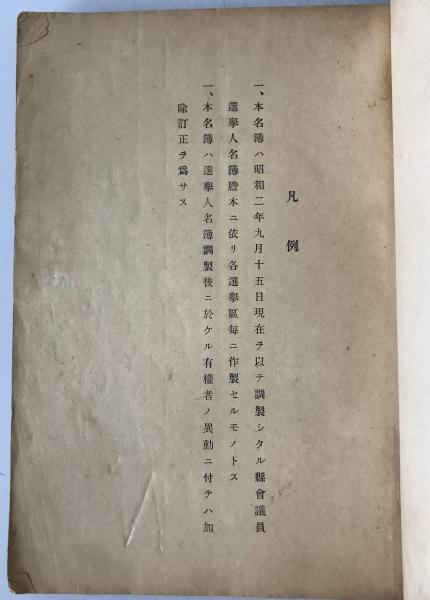 凡例
一、本名簿ハ昭和二年九月十五日現在ヲ以テ調製シタル縣會議員
選擧人名簿謄本ニ依リ各選擧區毎ニ作製セルモノトス
一、本名簿ハ選擧人名簿調製後ニ於ケル有權者ノ異動ニ付テハ加
除訂正ヲ爲サス